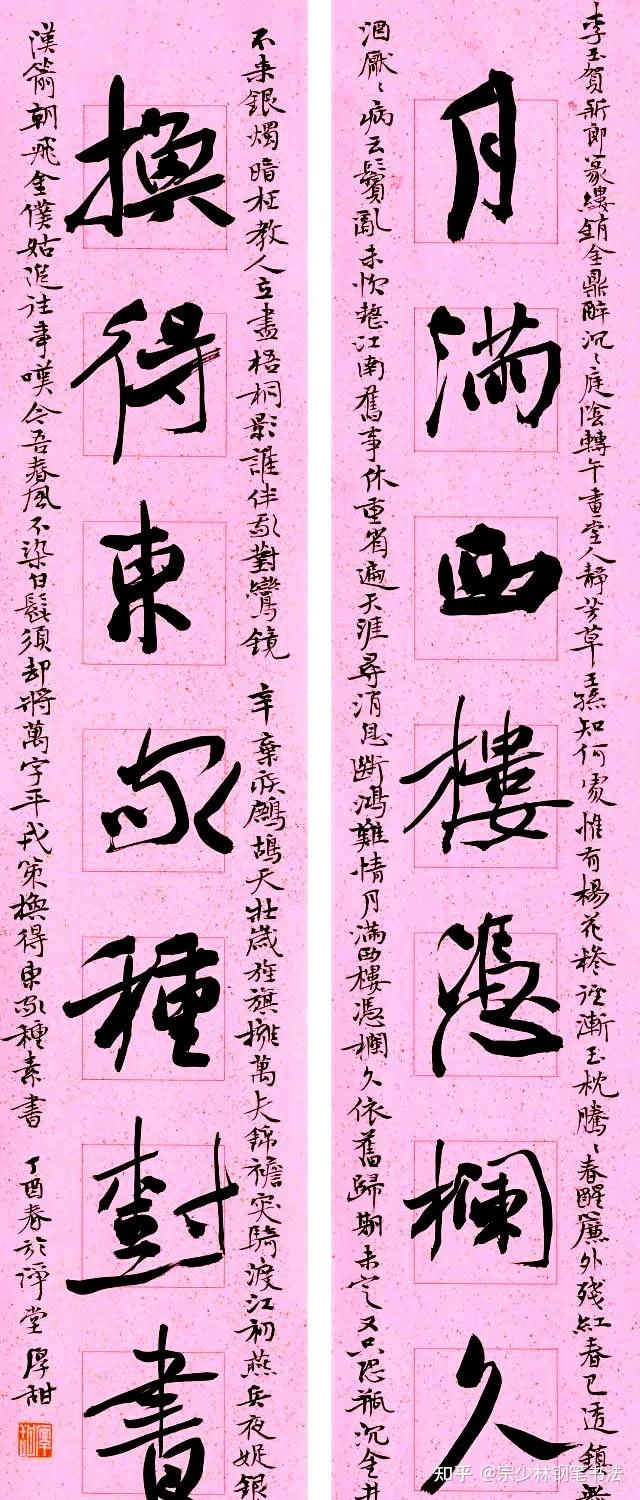 李玉賀新郎篆縷銷金鼎醉沉〻庭陰轉午畫堂人靜芳草王孫知何處惟有楊花糝徑漸玉枕騰〻春醒簾外殘紅春已透鎮無
月滿西樓憑欄久
酒厭〻病云鬢亂未忺整江南舊事休重省遍天涯尋消息斷鴻難情月滿西樓憑欄久依舊歸期未定又只恐瓶沉金井
不來銀燭暗枉教人立盡梧桐影誰伴我對鸞鏡 辛棄疾鷓鴣天壯歲旌旗擁萬夫錦襜突騎渡江初燕兵夜娖銀
換得東家種樹書
漢箭朝飛金僕姑追往事嘆今吾春風不染白髭須却將萬字平戎策換得東家種素書 丁酉春於淨堂厚甜
知乎 @宗少林钢笔书法